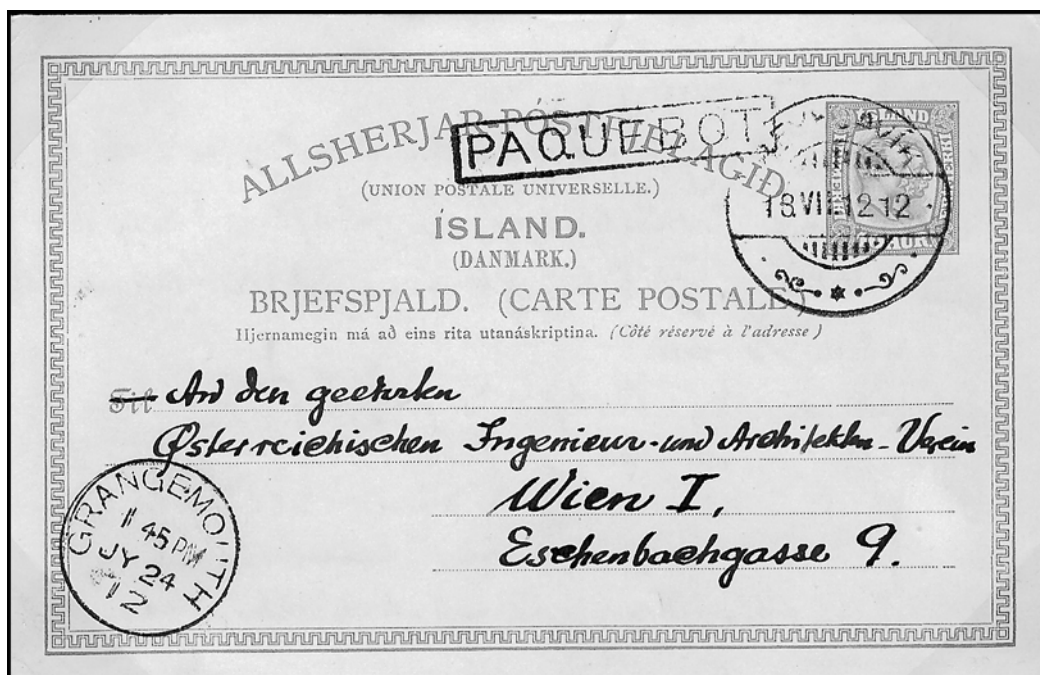 ALLSHERJAR-PÓSTFJELAGIÐ.
PAQUEBOT
(UNION POSTALE UNIVERSELLE.)
ÍSLAND.
(DANMARK.)
BRJEFSPJALD. (CARTE POSTALE)
Hjernamegin má að eins rita utanáskriptina. (Côté réservé à l'adresse)
ÍSLAND
18.VII.12 12
AUR
Til An den geehrten
Österreichischen Ingenieur- und Architekten-Verein
Wien I,
Eschenbachgasse 9.
GRANGEMOUTH
45 PM
JY 24
12